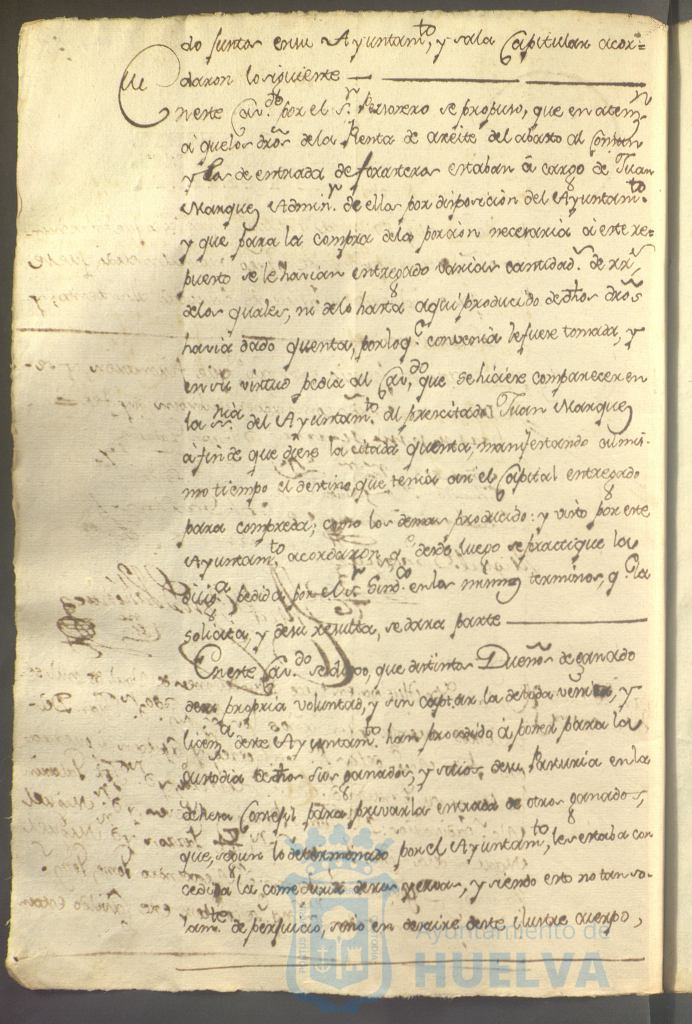 do juntos en su Ayuntamto, y sala Capitular acor=
daron lo siguiente
Eneste Cavdo por el Sr se propuso, que en atenn
á quelos dros dela Renta de aceite del abasto al Comun
y la de entrada de forasteros estaban á cargo de Juan
Marquez Adminr. de ellas por disposicion del Ayuntamto.
y que para la compra dela porcion necesaria á este re=
puesto se le havian entregado varias cantidads. de rrs,
delos quales, ni delo hasta aqui producido de dhos dros
havia dado quenta, por lo qe. convenia le fuese tomada, y
en su virtud pedia al Cavdo, que se hiciese comparecer en
la del Ayuntamto. al precitado Juan Marquez
á fin de que diese la citada quenta, manifestando al mis-
mo tiempo el destino, que tenia asi el Capital entregado
para compreda; como los demas producido: y visto por este
Ayuntamto. acordaron qe. desde luego se practique la
diliga pedida por el Sr Sindco. enlos mismos terminos, qe. la
solicita, y desu resulta, se dara parte
Eneste Cavdo se dijo, que distintos Dueños de ganado
desu propria voluntad, y sin captar la devida venia, y
licena. deste Ayuntamto. han procedido á poner para la
custodia de dhos sus ganados, y sitios desu Pasturia en la
dehesa Conejil para privar la entrada de otros ganados,
que, segun lo determinado por el Ayuntamto, les estaba con
cedida la comeduria desus yervas, y siendo esto no tan so-
lamte. de perjuicio, sino en desaire deste ilustre cuerpo,
Ayuntamiento de
HUELVA